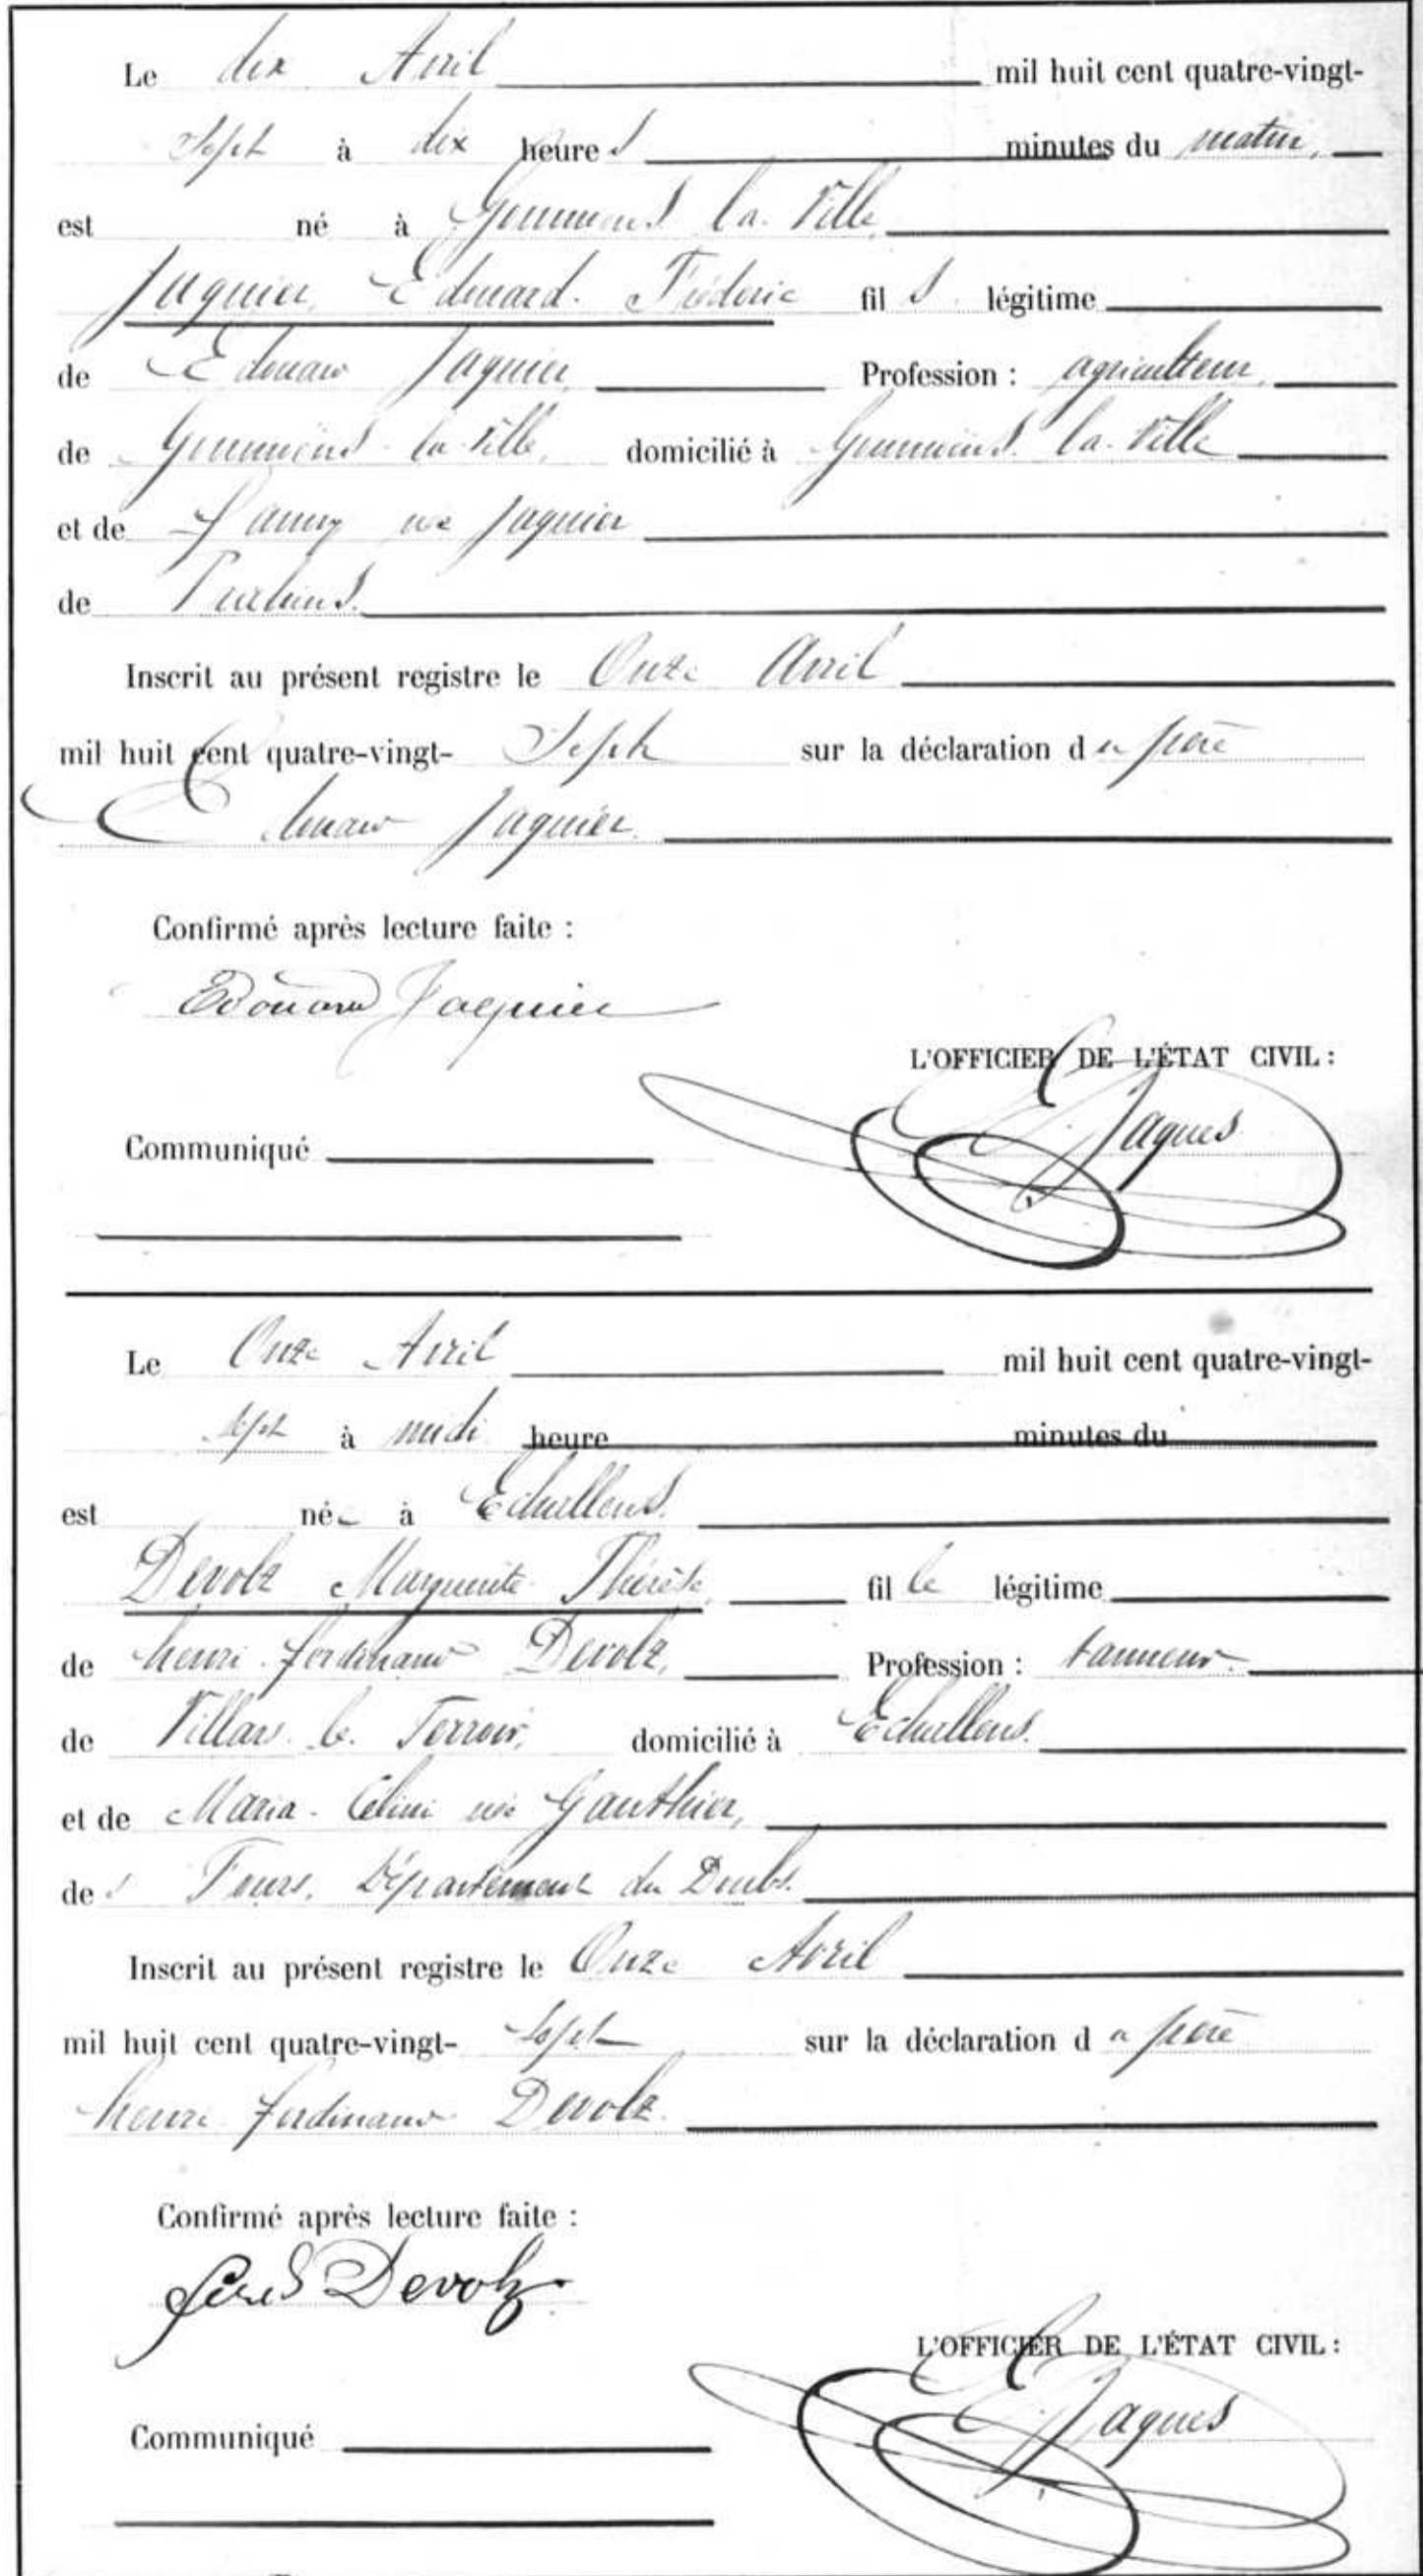 Le dix Avril mil huit cent quatre-vingt-
Sept à dix heures minutes du matin,
est né à Goumoens la Ville
Jaquier, Edouard. Fréderic fils légitime
de Edouard Jaquier Profession : agriculteur,
de Goumoëns-la-Ville, domicilié à Goumoëns. la-Ville
et de Fanny née Jaquier
de
Inscrit au présent registre le Onze Avril
mil huit cent quatre-vingt- Sept sur la déclaration du père
Edouard Jaquier.
Confirmé après lecture faite :
Edouard Jaquier
L'OFFICIER DE L'ÉTAT CIVIL :
Jaques
Communiqué
Le Onze Avril mil huit cent quatre-vingt-
sept à midi heure minutes du
est née à Echallens.
Devolz Marguerite Thérèse, fille légitime
de henri-ferdinand Devolz, Profession : tanneur.
de Villars. le. Terroir, domicilié à Echallens.
et de Maria-Céline née Gauthier,
des Fours, Département du Doubs.
Inscrit au présent registre le Onze Avril
mil huit cent quatre-vingt- Sept sur la déclaration du père
henri ferdinand Devolz.
Confirmé après lecture faite :
ferd Devolz
L'OFFICIER DE L'ÉTAT CIVIL :
Jaques
Communiqué